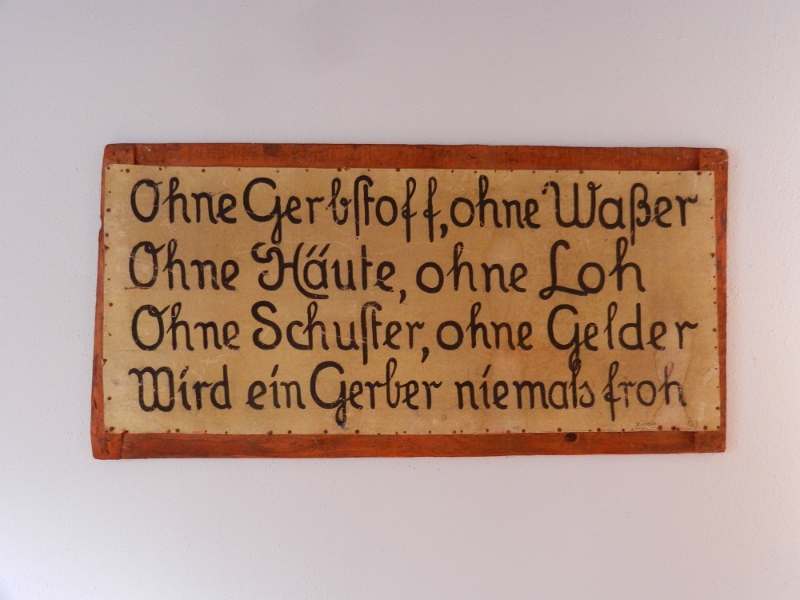 Ohne Gerbſtoff, ohne Waßer
Ohne Häute, ohne Loh
Ohne Schuſter, ohne Gelder
Wird ein Gerber niemals froh